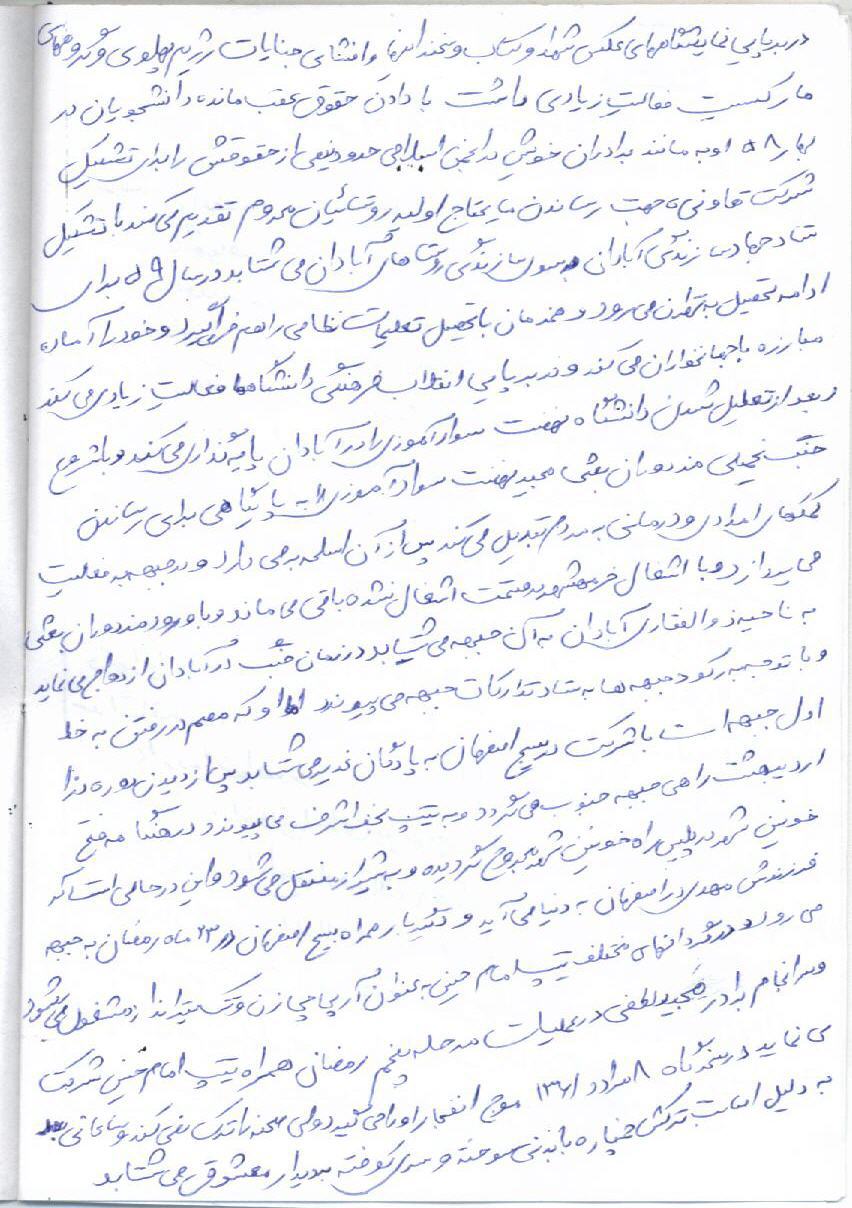 در برپایی نمایشگاههای عکس شهدا و کتاب و سخنرانیها و افشای جنایات رژیم پهلوی و گروههای
مارکسیست فعالیت زیادی داشت با دادن حقوق عقب مانده دانشجویان در
بهار ۵۸ او به مانند برادران خویش در انجمن اسلامی حدود نیمی از حقوقش را برای تشکیل
شرکت تعاونی جهت رساندن مایحتاج اولیه روستائیان محروم تقدیم می کند با تشکیل
ستاد جهاد سازندگی آبادان به سوی سازندگی روستاهای آبادان می شتابد در سال ۵۹ برای
ادامه تحصیل به تهران می رود و همزمان با تحصیل تعلیمات نظامی را هم فرا می گیرد و خود را آماده
مبارزه با جهانخواران می کند و در برپایی انقلاب فرهنگی دانشگاهها فعالیت زیادی می کند
و بعد از تعطیل شدن دانشگاه نهضت سوادآموزی را در آبادان پایه گذاری می کند و با شروع
جنگ تحمیلی مزدوران بعثی مجید نهضت سوادآموزی را به پایگاهی برای رساندن
کمکهای امدادی و درمانی به مردم تبدیل می کند پس از آن اسلحه برمی دارد و در جبهه به فعالیت
می پردازد و با اشغال خرمشهر در قسمت اشغال نشده باقی می ماند و با ورود مزدوران بعثی
به ناحیه ذوالفقاری آبادان به آن جبهه می شتابد در زمان جنگ در آبادان ازدواج می نماید
و با توجه به رکود جبهه ها به ستاد تدارکات جبهه می پیوندد اما او که مصمم در رفتن به خط
اول جبهه است با شرکت در بسیج اصفهان به پادگان غدیر می شتابد پس از دیدن دوره در
اردیبهشت راهی جبهه جنوب می گردد و به تیپ نجف اشرف می پیوندد در هنگامه فتح
خونین شهر در پلیس راه خونین شهر مجروح گردیده و به شیراز منتقل می شود و این در حالی است که
فرزندش مهدی در اصفهان به دنیا می آید و دگربار همراه بسیج اصفهان در ۲۳ ماه رمضان به جبهه
می رود و در گردانهای مختلف تیپ امام حسین به عنوان آرپی جی زن و تک تیرانداز مشغول می شود
و سرانجام برادر مجید لطفی در عملیات مرحله پنجم رمضان همراه تیپ امام حسین شرکت
می نماید در سحرگاه ۸ مرداد ۱۳۶۱ موج انفجار او را می گیرد ولی صحنه را ترک نمی کند و ساعاتی بعد
به دلیل اصابت ترکش خمپاره با بدنی سوخته و سری کوفته به دیدار معشوق می شتابد